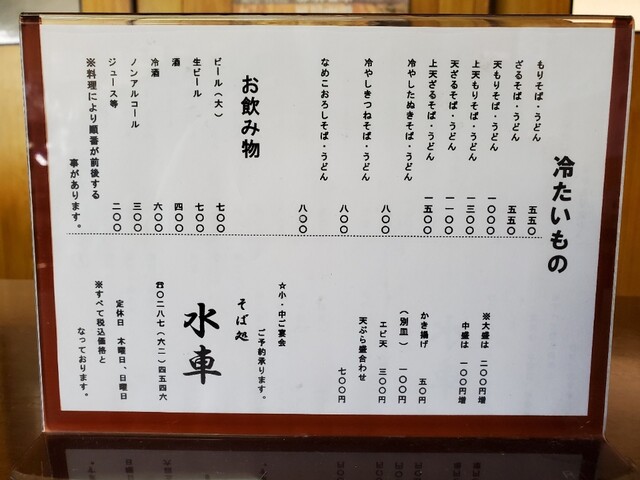 冷たいもの
もりそば・うどん 五五〇
ざるそば・うどん 五五〇
天もりそば・うどん 一〇〇〇
上天もりそば・うどん 一三〇〇
天ざるそば・うどん 一一〇〇
上天ざるそば・うどん 一五〇〇
冷やしたぬきそば・うどん 八〇〇
冷やしきつねそば・うどん 八〇〇
なめこおろしそば・うどん 八〇〇
お飲み物
ビール（大） 七〇〇
生ビール 七〇〇
酒 四〇〇
冷酒 六〇〇
ノンアルコール 三〇〇
ジュース等 二〇〇
※料理により順番が前後する
事があります。
※大盛は 二〇〇円増
中盛は 一〇〇円増
かき揚げ 五〇円
（別皿） 一〇〇円
エビ天 三〇〇円
天ぷら盛合わせ 七〇〇円
☆小・中ご宴会
ご予約承ります。
そば処
水車
☎〇二八七（六二）四五四六
定休日 木曜日、日曜日
※すべて税込価格と
なっております。